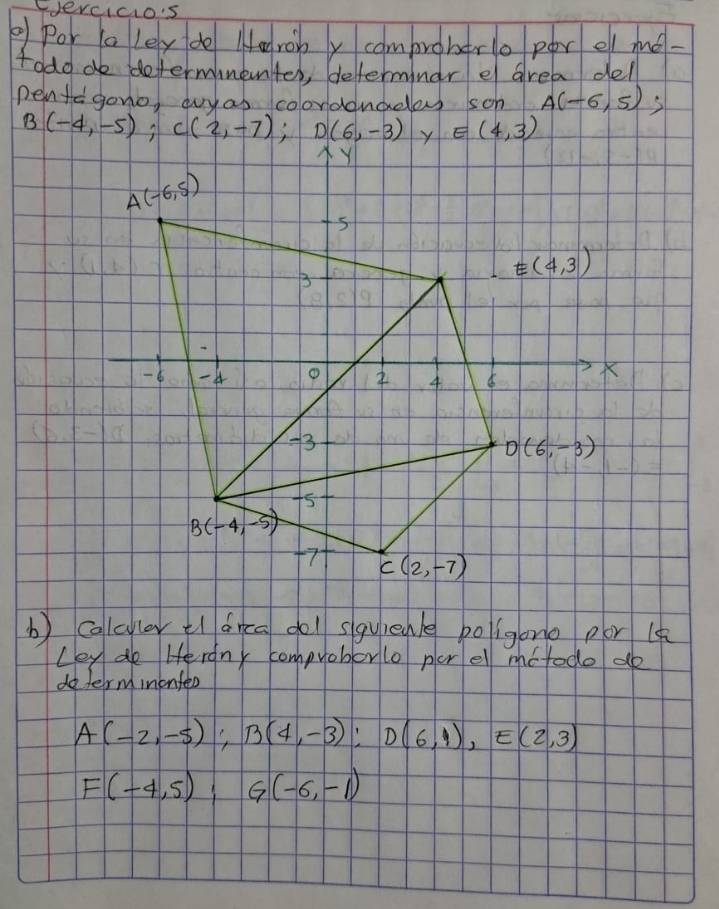 Ejercicio's
a) Por la Ley de Herón y comprobarlo por el mé-
todo de determinantes, determinar el área del
pentágono, cuyas coordenadas son A(-6,5);
B(-4,-5); C(2,-7); D(6,-3) y E(4,3)
Y
A(-6,5)
5
3
E(4,3)
-6 -4 0 2 4 6 X
-3
D(6,-3)
-5
B(-4,-5)
-7
C(2,-7)
b) Calcular el área del siguiente polígono por la
Ley de Herón y comprobarlo por el método de
determinantes
A(-2,-5); B(4,-3); D(6,1), E(2,3)
F(-4,5); G(-6,-1)